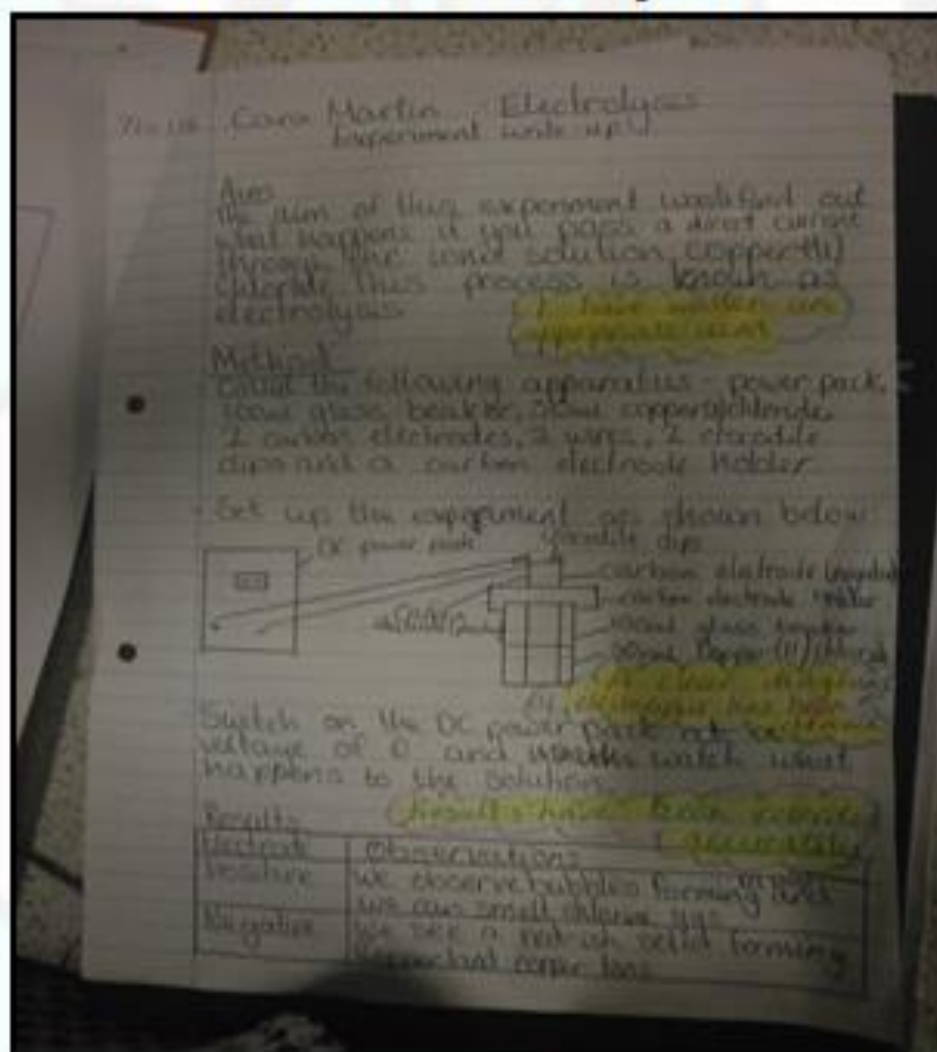 Cara Martin Electrolysis
Experiment write up
Aim
The aim of this experiment was find out
what happens if you pass a direct current
through the ionic solution, copper(II)
chloride this process is known as
electrolysis
I have written an
appropriate aim
Method
Collect the following apparatus - power pack,
100ml glass beaker, 50ml copper(II)chloride,
2 carbon electrodes, 2 wires, 2 crocodile
clips and a carbon electrode holder
Set up the experiment as shown below
DC power pack
crocodile clips
carbon eletrode
carbon electrode holder
100ml glass beaker
50ml Copper (II) chloride
A clear diagram
has been
Switch on the DC power pack at a
voltage of and watch what
happens to the solution.
Results
results have been recorded
accurately
Electrode Observations
Positive we observe bubbles forming and
we can smell chlorine gas
Negative we see a red-ish solid forming
copper ions